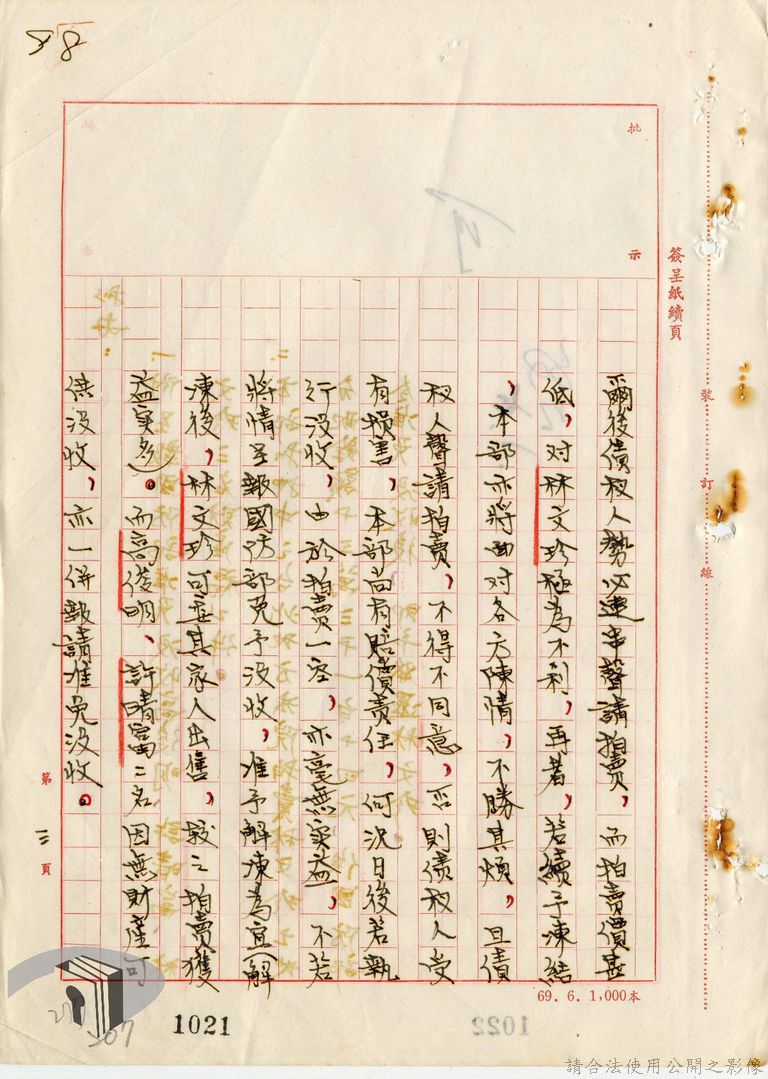 58
批
示
簽呈紙續頁
裝
訂
線
爾後債权人勢必連串聲請拍賣，而拍賣價甚
低，对林文珍極為不利，再者，若續予凍結
，本部亦將面对各方陳情，不勝其煩，且債
权人聲請拍賣，不得不同意，否則債权人受
有損害，本部尚有賠償責任，何況日後若執
行沒收，由於拍賣一空，亦毫無实益，不若
將情呈報國防部免予沒收，准予解凍為宜（解
凍後，林文珍可委其家人出售，較之拍賣獲
益实多）。而高俊明、許晴富二名因無財產可
供沒收，亦一併報請准免沒收。
第三頁
69. 6. 1,000本
207
1021
1022
請合法使用公開之影像